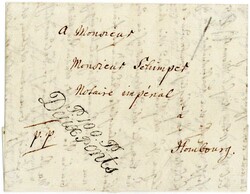 A Monsieur
Monsieur Schimper
Notaire impérial
à
Hombourg.
P.100.P.
Deux-Ponts
p.p